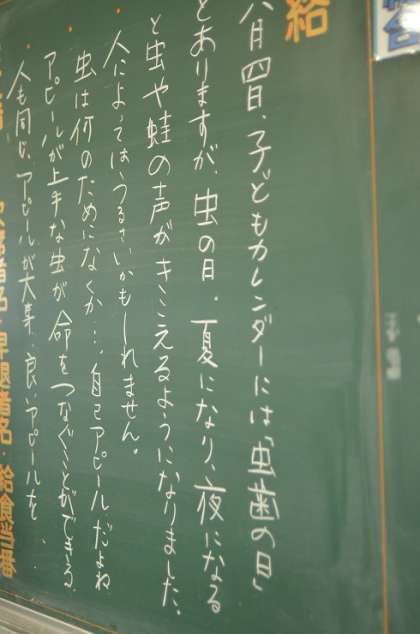 給
六月四日、子どもカレンダーには「虫歯の日」
とありますが、虫の日。夏になり、夜になる
と虫や蛙の声がきこえるようになりました。
人によってはうるさいかもしれません。
虫は何のためになくか…。自己アピールだよね
アピールが上手な虫が命をつなぐことができる。
人も同じ、アピールが大事。良いアピールを
欠席者名・早退者名・給食当番